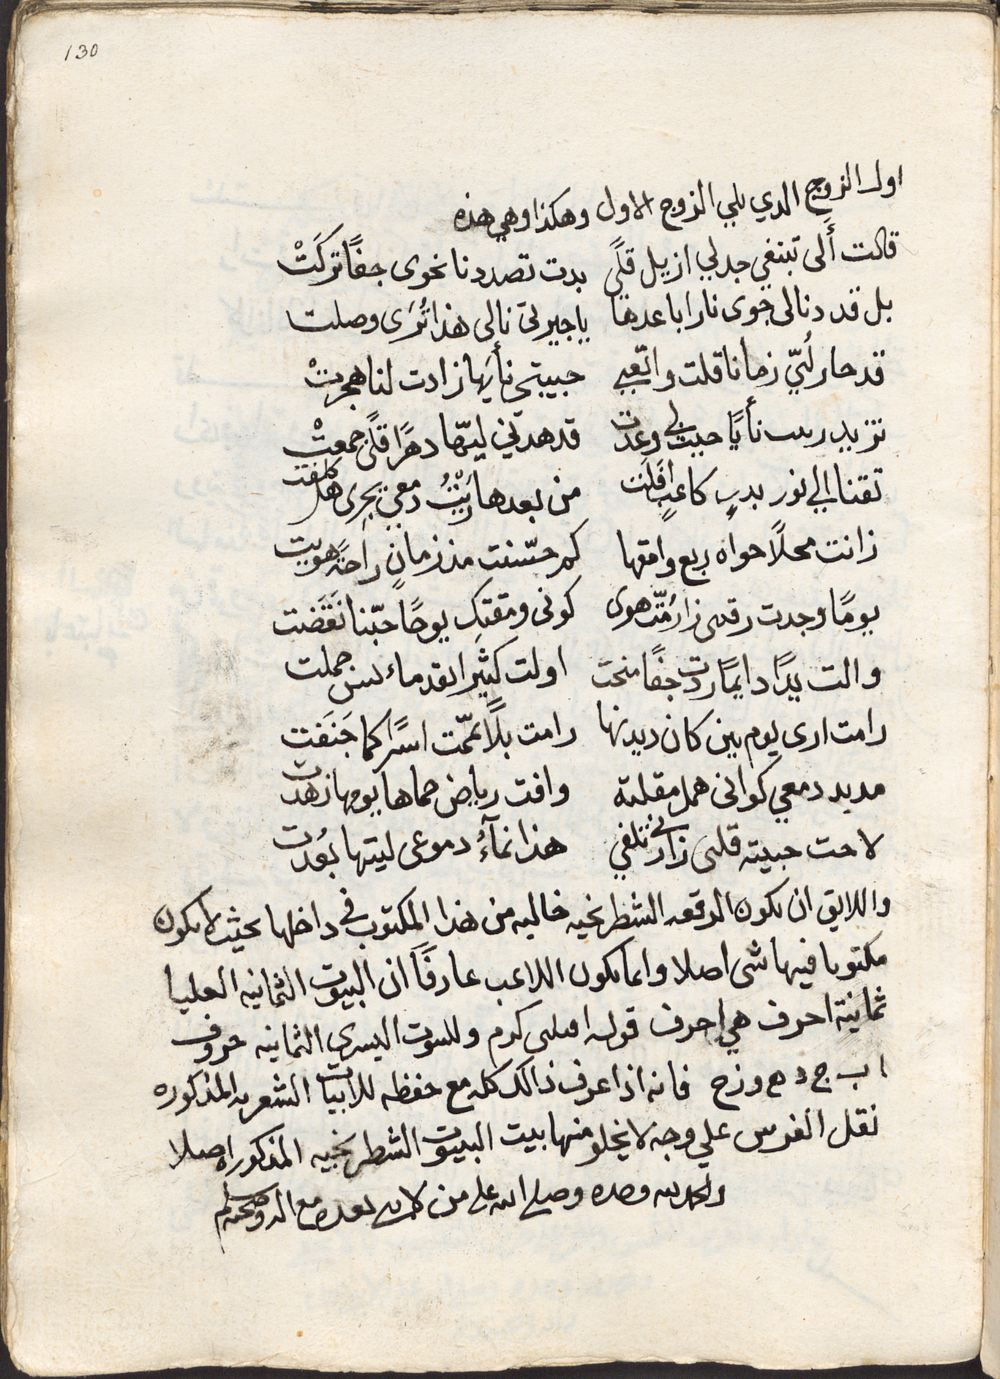 130
اول الزوج الدي يلي الزوج الاول وهكذا وهي هذه
قالت ألى تبتغي جدلي ازيل قلًي بدت تصددنا نحوى جفًا تركَتْ
بل قد دنالى جوى نارا باعدها ياجيرتى نالى هذا تُرَى وصلت
قد حار لُبّي زمانا قلت واتّعبي حبيبتى نأيَها زادت لنا هجرتْ
تزيد نأيًا حبيبتى وعدت قد هدّني ليتها دهرًا قلًى جمعتْ
تقنا الي نور بدرٍ كاعبٍ افلَت من بعدها بَيْتُ دمعي يجرى هل كلفت
زانت محلًا حواه ربع وافقها كم حسّنت مذ زمانٍ راحةً هويت
يومًا وجدت رقى زار مُتّ هوى كونى ومقتك يوحًا حبّنا نقضت
والت يدًا دايمًا ردت جفًا منحت اولت كثيرا لقد ماء حملت
رامت ارى يوم بين كان ديدنها رامت بلًا عمّت اسرًا كما جَنَفت
مديد دمعي كوانى همل مقلته وافت رياض حماها يومها زهدت
لاحت حبيبته قلى زارنى تلفي هذا نمآءُ دموعى ليتها بعُدت
واللايق ان يكون الرقعه الشطرنجيه خاليه من هذا المكتوب في داخلها بحيث لا يكون
مكتوبا فيها شى اصلا وانما يكون اللاعب عارفًا ان البيوت الثمانيه العليا
ثمانية احرف هي احرف قوله كرم وللبيوت اليسري الثمانيه حروف
ا ب ج د ه و ز ح فانه اذا عرف ذالك كله مع حفظه للابيات الشعريه المذكوره
نقل الفرس علي وجه لا يخلو منها بيت البيوت الشطرنجيه المذكوره اصلا
والحمد لله وحده وصلي الله علي من لا نبي بعده مع اله وصحبه وسلم